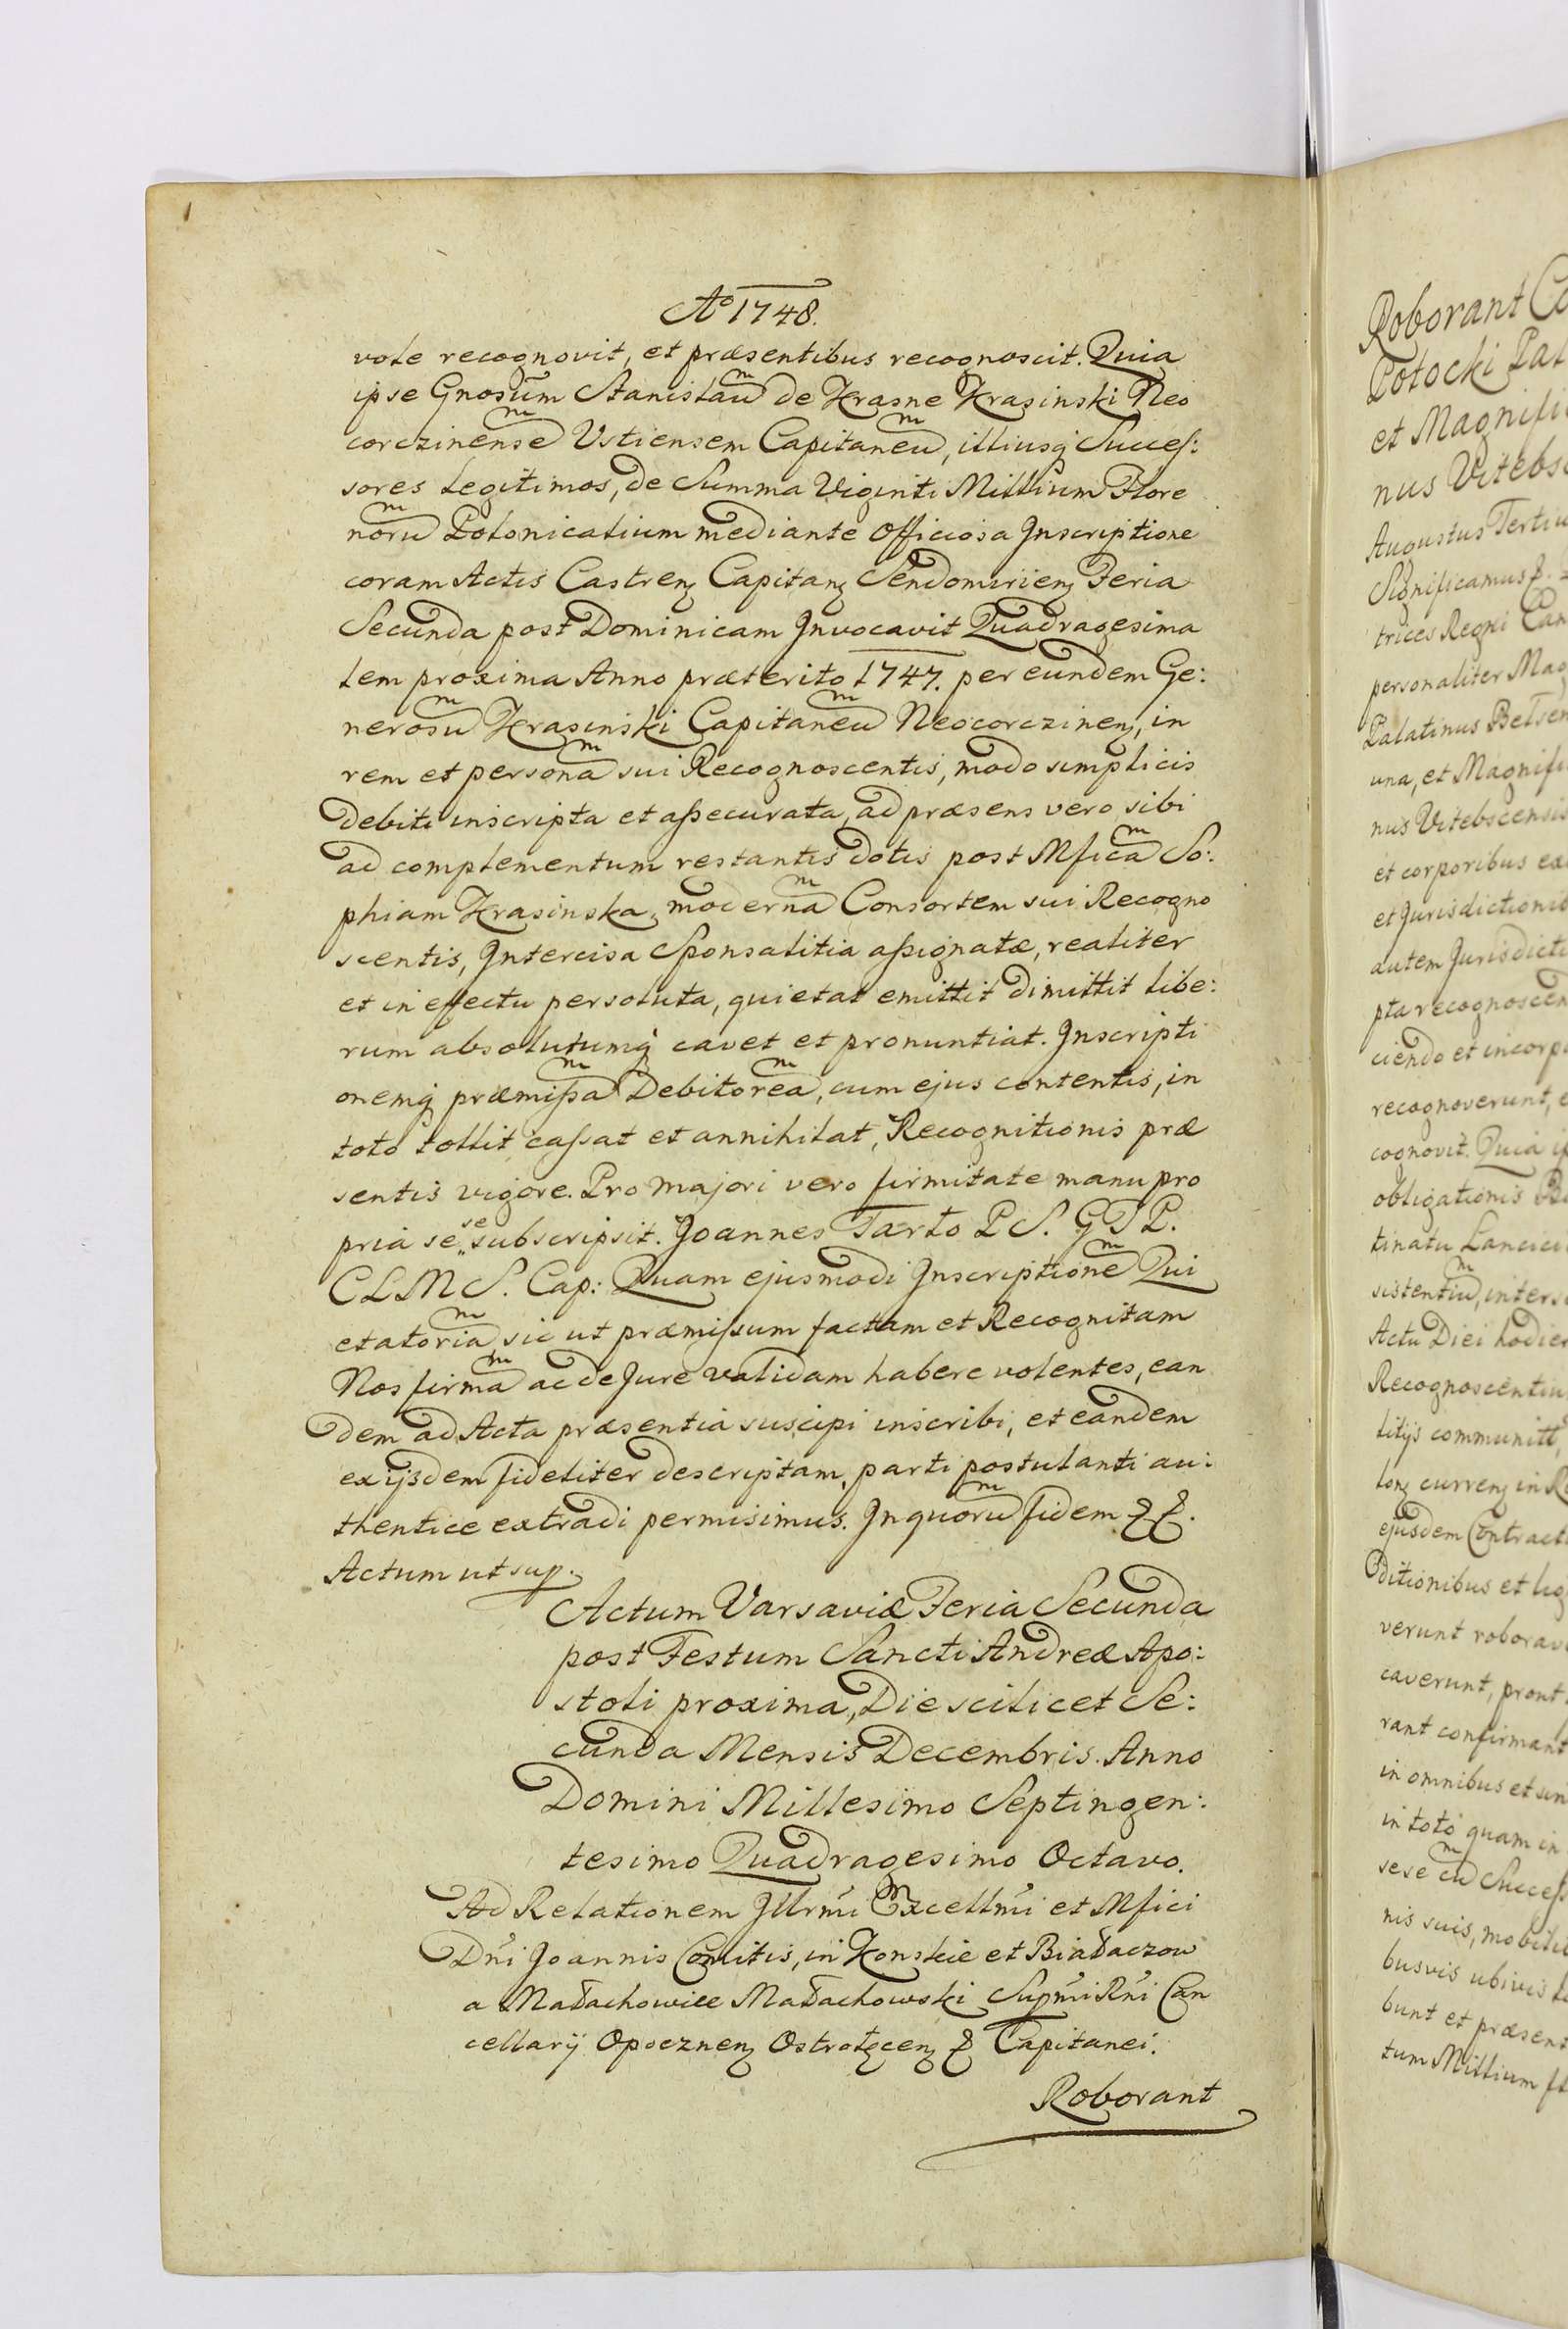 Aº 1748.
vole recognovit, et præsentibus recognoscit. Quia
ipse Gnosum̃ Stanislau͠m de Krasne Krasinski Neo
corczinense͠m Ustiensem Capitaneu͠m, illiusq́ Succes:
sores legitimos, de Summa Viginti Millium Flore
noru͠m Polonicalium mediante officiosa Inscriptione
coram Actis Castren̨ Capitan̨ Sendomirien̨ Feria
Secunda post Dominicam Invocavit Quadragesima
lem proxima Anno præterito 1747. per eundem Ge:
nerosu͠m Krasinski Capitaneu͠m Neocorczinen̨, in
rem et persona͠m sui Recognoscentis, modo simplicis
debiti inscripta et assecurata, ad præsens vero sibi
ad complementum restantis dotis post Mfica͠m So:
phiam Krasinska, moderna͠m Consortem sui Recogno
scentis, Intercisa Sponsalitia assignatæ, realiter
et in effectu persoluta, quietat emittit dimittit libe:
rum absolutumq́ cavet et pronuntiat. Inscripti
onemq́ præmissa͠m Debitorea͠m, cum ejus contentis, in
toto tollit cassat et annihilat, Recognitionis præ
sentis vigore. Pro majori vero firmitate manu pro
pria se„se subscripsit. Joannes Tarło P S. G T P.
C L M S. Cap: Quam ejusmodi Inscriptione͠m Qui
etatoria͠m sic ut præmissum factam et Recognitam
Nos firma͠m ac de Jure validam habere volentes, ean
dem ad Acta præsentia suscipi inscribi, et eandem
ex ijsdem fideliter descriptam, parti postulanti au:
thentice extradi permisimus. In quoru͠m fidem &&.
Actum ut sup.
Actum Varsaviæ Feria Secunda
post Festum Sancti Andreæ Apo:
stoli proxima, Die scilicet Se:
cunda Mensis Decembris. Anno
Domini Millesimo Septingen:
tesimo Quadragesimo Octavo.
Ad Relationem Illrm̃i Excellm̃i et Mfici
Dn̄i Joannis Comitis, in Konskie et Białaczow
a Małachowice Małachowski Supm̃i Rñi Can
cellarij Opocznen̨ Ostrołęcen̨ & Capitanei.
Roborant
Roborant
Potocki Pal
et Magnifi
nus Vitebs
Augustus Tertiu
Significamus &.
trices Regni Can
personaliter Mag
Palatinus Belsen
una, et Magnifi
nus Vitebscensis
et corporibus ex
et Jurisdictionib
autem Jurisdicti
pta recognoscen
ciendo et incorp
recognoverunt, e
cognovit. Quia i
obligationis
tinatu Lancici
sistentiu͠m, inters
Actu Diei hodier
Recognoscentiu
litijs communit
curren̨ in R
ejusdem Contract
ditionibus et lig
verunt roborav
caverunt, prout
rant confirmant
in omnibus et sin
in toto quam in
sese cu͠m Success
nis suis, mobili
busvis ubivis
bunt et præsent
tum Millium fl